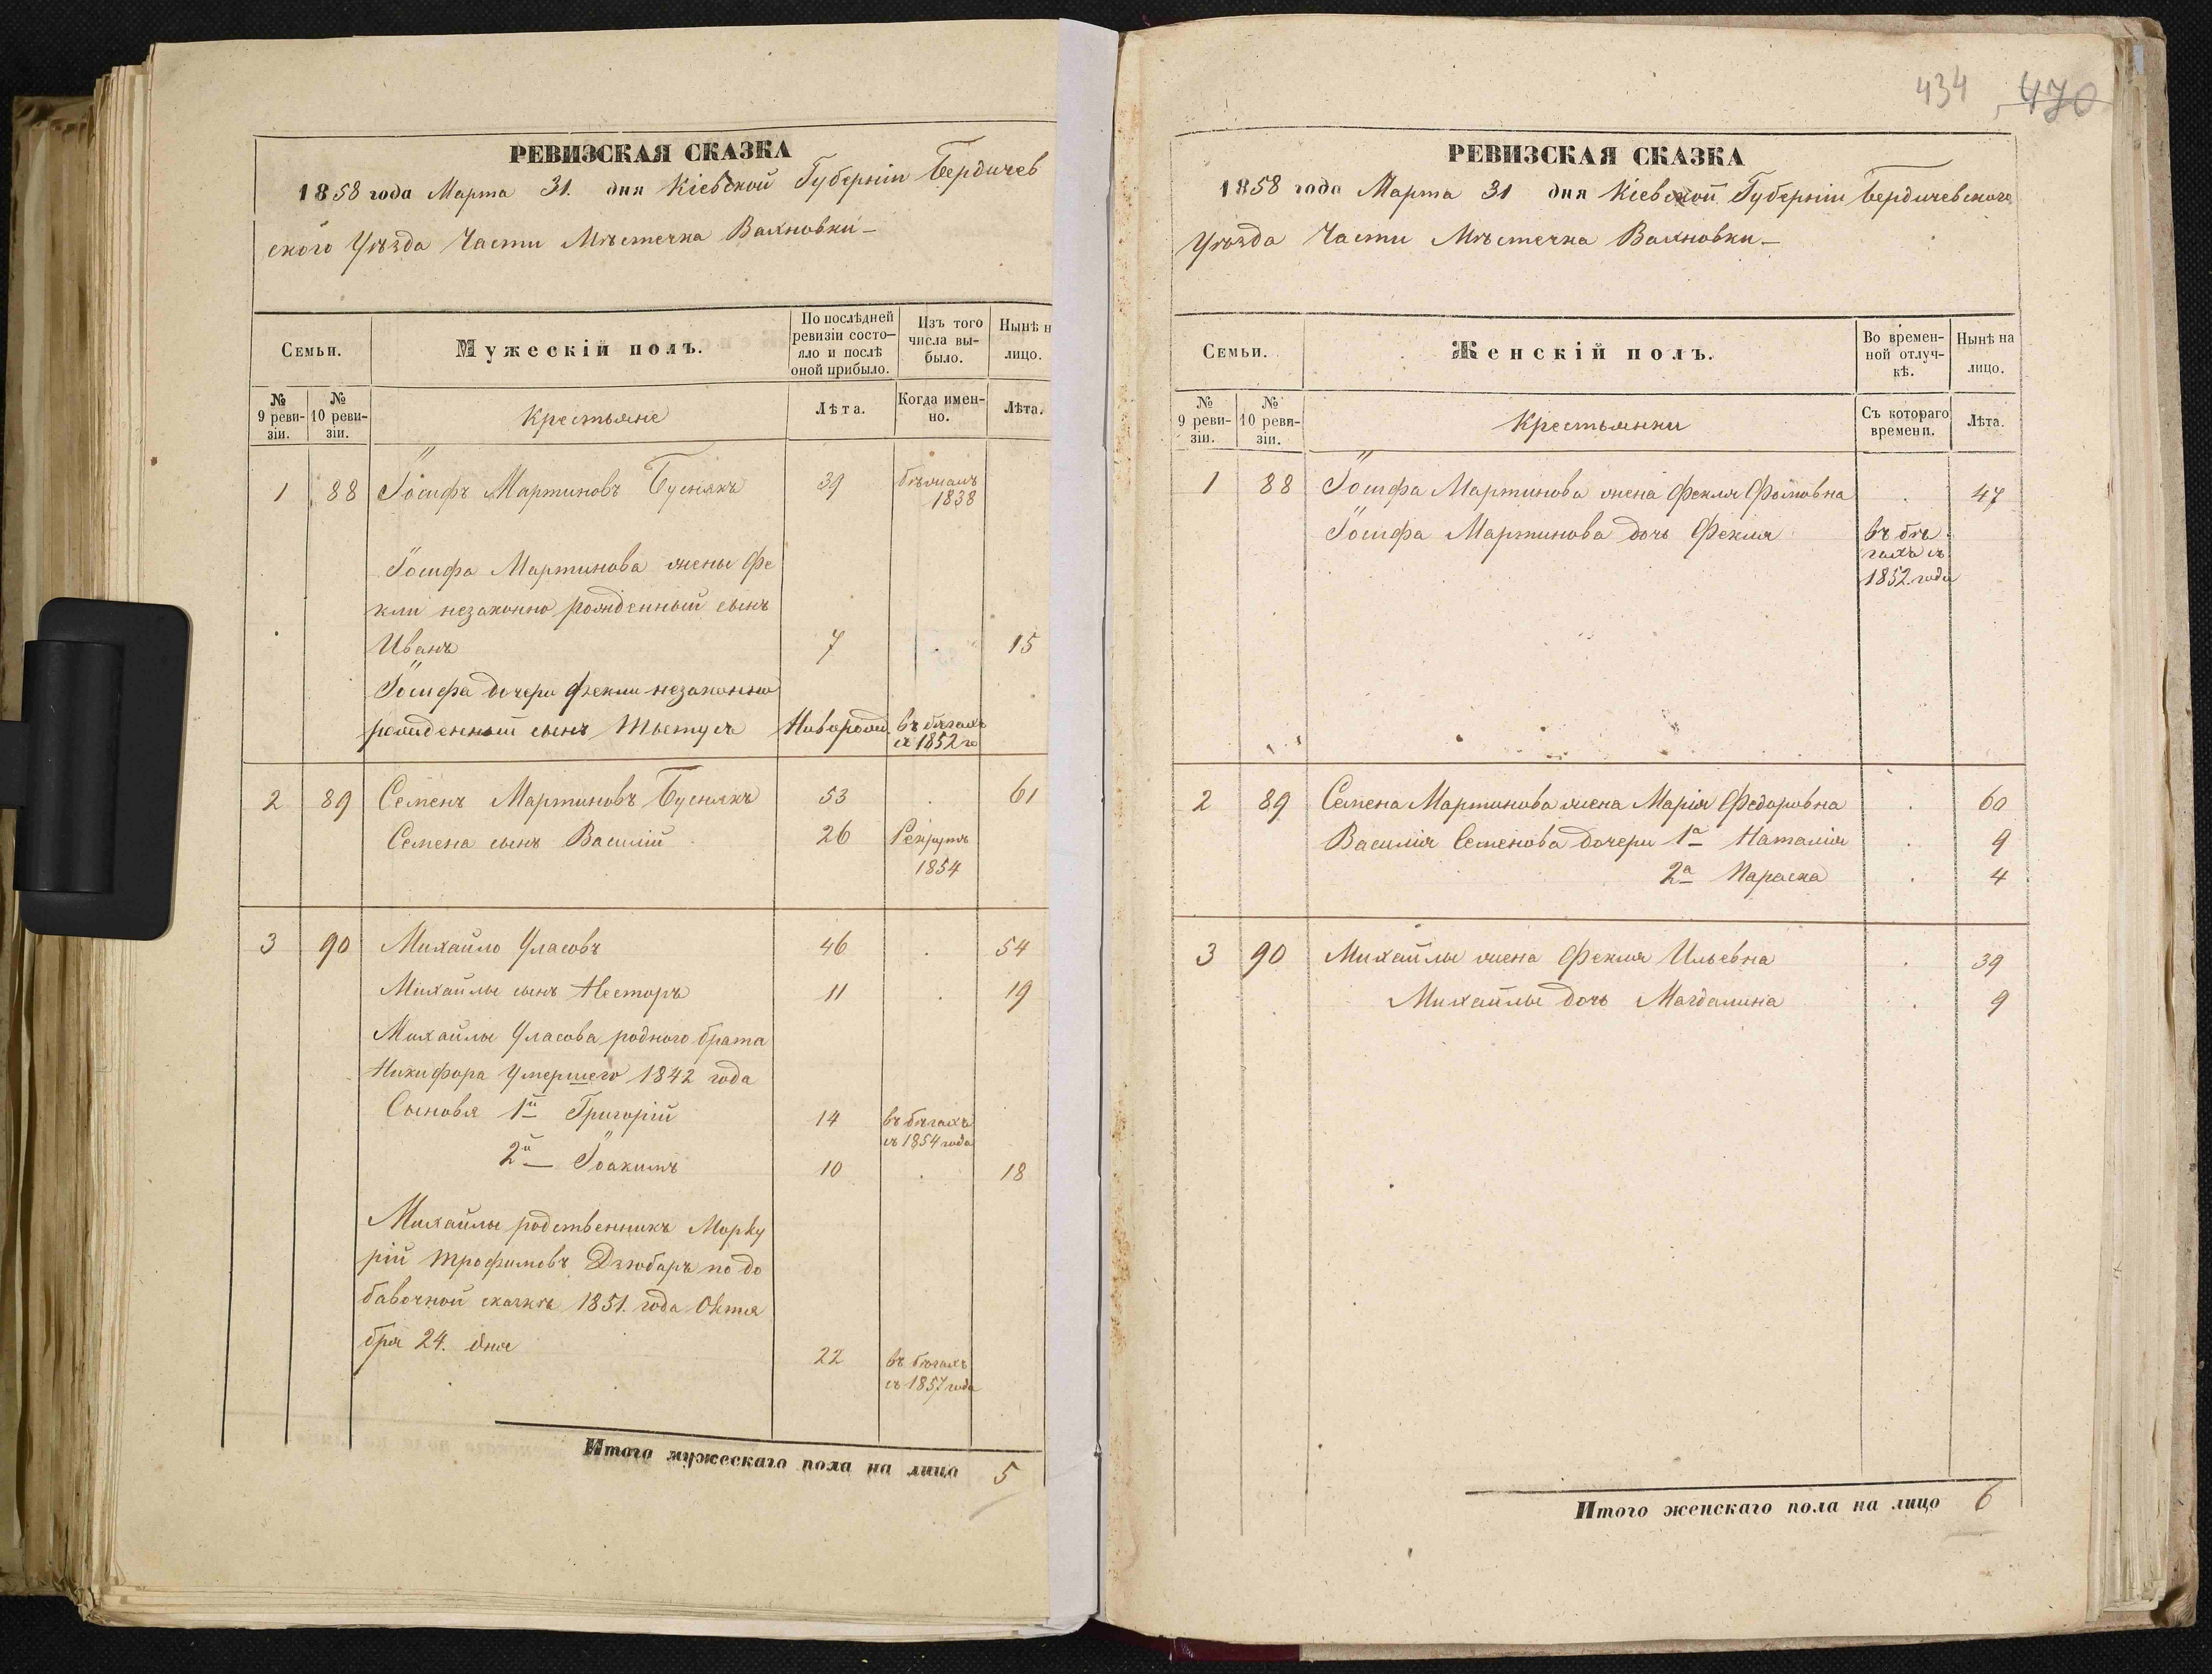 РЕВИЗСКАЯ СКАЗКА
1858 года Марта 31. дня Кіевской Губерніи Бердичев
ского Уѣзда Части Мѣстечка Вахновки
Семьи.
Мужескій полъ.
По послѣдней ревизіи состо- яло и послѣ оной прибыло.
Изъ того числа вы- было.
Нынѣ н лицо.
№ 9 реви- зіи.
№ 10 реви- зіи.
Крестьяне
Лѣта.
Когда имен- но.
Лѣта.
1 88 Іосифъ Мартиновъ Буснякъ 39 бѣжалъ 1838
Іосифа Мартинова жены Фе
кли незаконно рожденный сынъ
Иванъ 7 . 15
Іосифа дочери Фекли незаконно
рожденный сынъ Новорожд. въ бѣгахъ съ 1852 го
2 89 Семенъ Мартиновъ Буснякъ 53 . 61
Семена сынъ Василій 26 Рекрутъ 1854
3 90 Михайло Уласовъ 46 . 54
Михайлы сынъ Несторъ 11 . 19
Михайлы Уласова родного брата
Никифора умершего 1842 года
Сыновья 1й Григорій 14 въ бѣгахъ съ 1854 года
2й Іоакимъ 10 . 18
Михайлы родственникъ Мерку
рій Трофимовъ Дзюбаръ по до
бавочной сказкѣ 1851. года Октя
бря 24. дня 22 въ бѣгахъ съ 1857 года
Итого мужескаго пола на лицо 5
434 470
РЕВИЗСКАЯ СКАЗКА
1858 года Марта 31 дня Кіевской Губерніи Бердичевского
Уѣзда Части Мѣстечка Вахновки
Семьи.
Женскій полъ.
Во времен- ной отлуч- кѣ.
Нынѣ на лицо.
№ 9 реви- зіи.
№ 10 реви- зіи.
Крестьянки
Съ котораго времени.
Лѣта.
1 88 Іосифа Мартинова жена Фекля Фомовна . 47
Іосифа Мартинова дочь Фекля въ бѣ гахъ съ 1852 года
2 89 Семена Мартинова жена Марія Федоровна . 60
Василія Семенова дочери 1а Наталія . 9
2а Параска . 4
3 90 Михайлы жена Фекля Ильевна . 39
Михайлы дочь Магдалина . 9
Итого женскаго пола на лицо 6